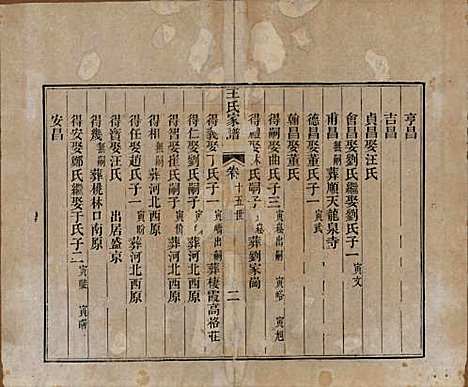 亨昌
吉昌
貞昌娶汪氏
會昌娶劉氏繼娶劉氏子一 寅文
甫昌 無嗣 葬順天龍泉寺
德昌娶董氏子一 寅武
翰昌娶董氏
得嗣娶曲氏子三 出嗣 寅旭
得 氏嗣子 葬劉家崗
王氏家譜 卷 十五世 二
得義娶丁氏子一 出嗣 葬棲霞高格莊
得仁娶劉氏嗣子 葬河北西原
得智娶崔氏嗣子 葬河北西原
得相 無嗣 葬河北西原
得任娶趙氏子一 葬河北西原
得寶娶汪氏 出居盛京
得幾 無嗣 葬桃林口南原
得安娶鄭氏繼娶于氏子二
安昌